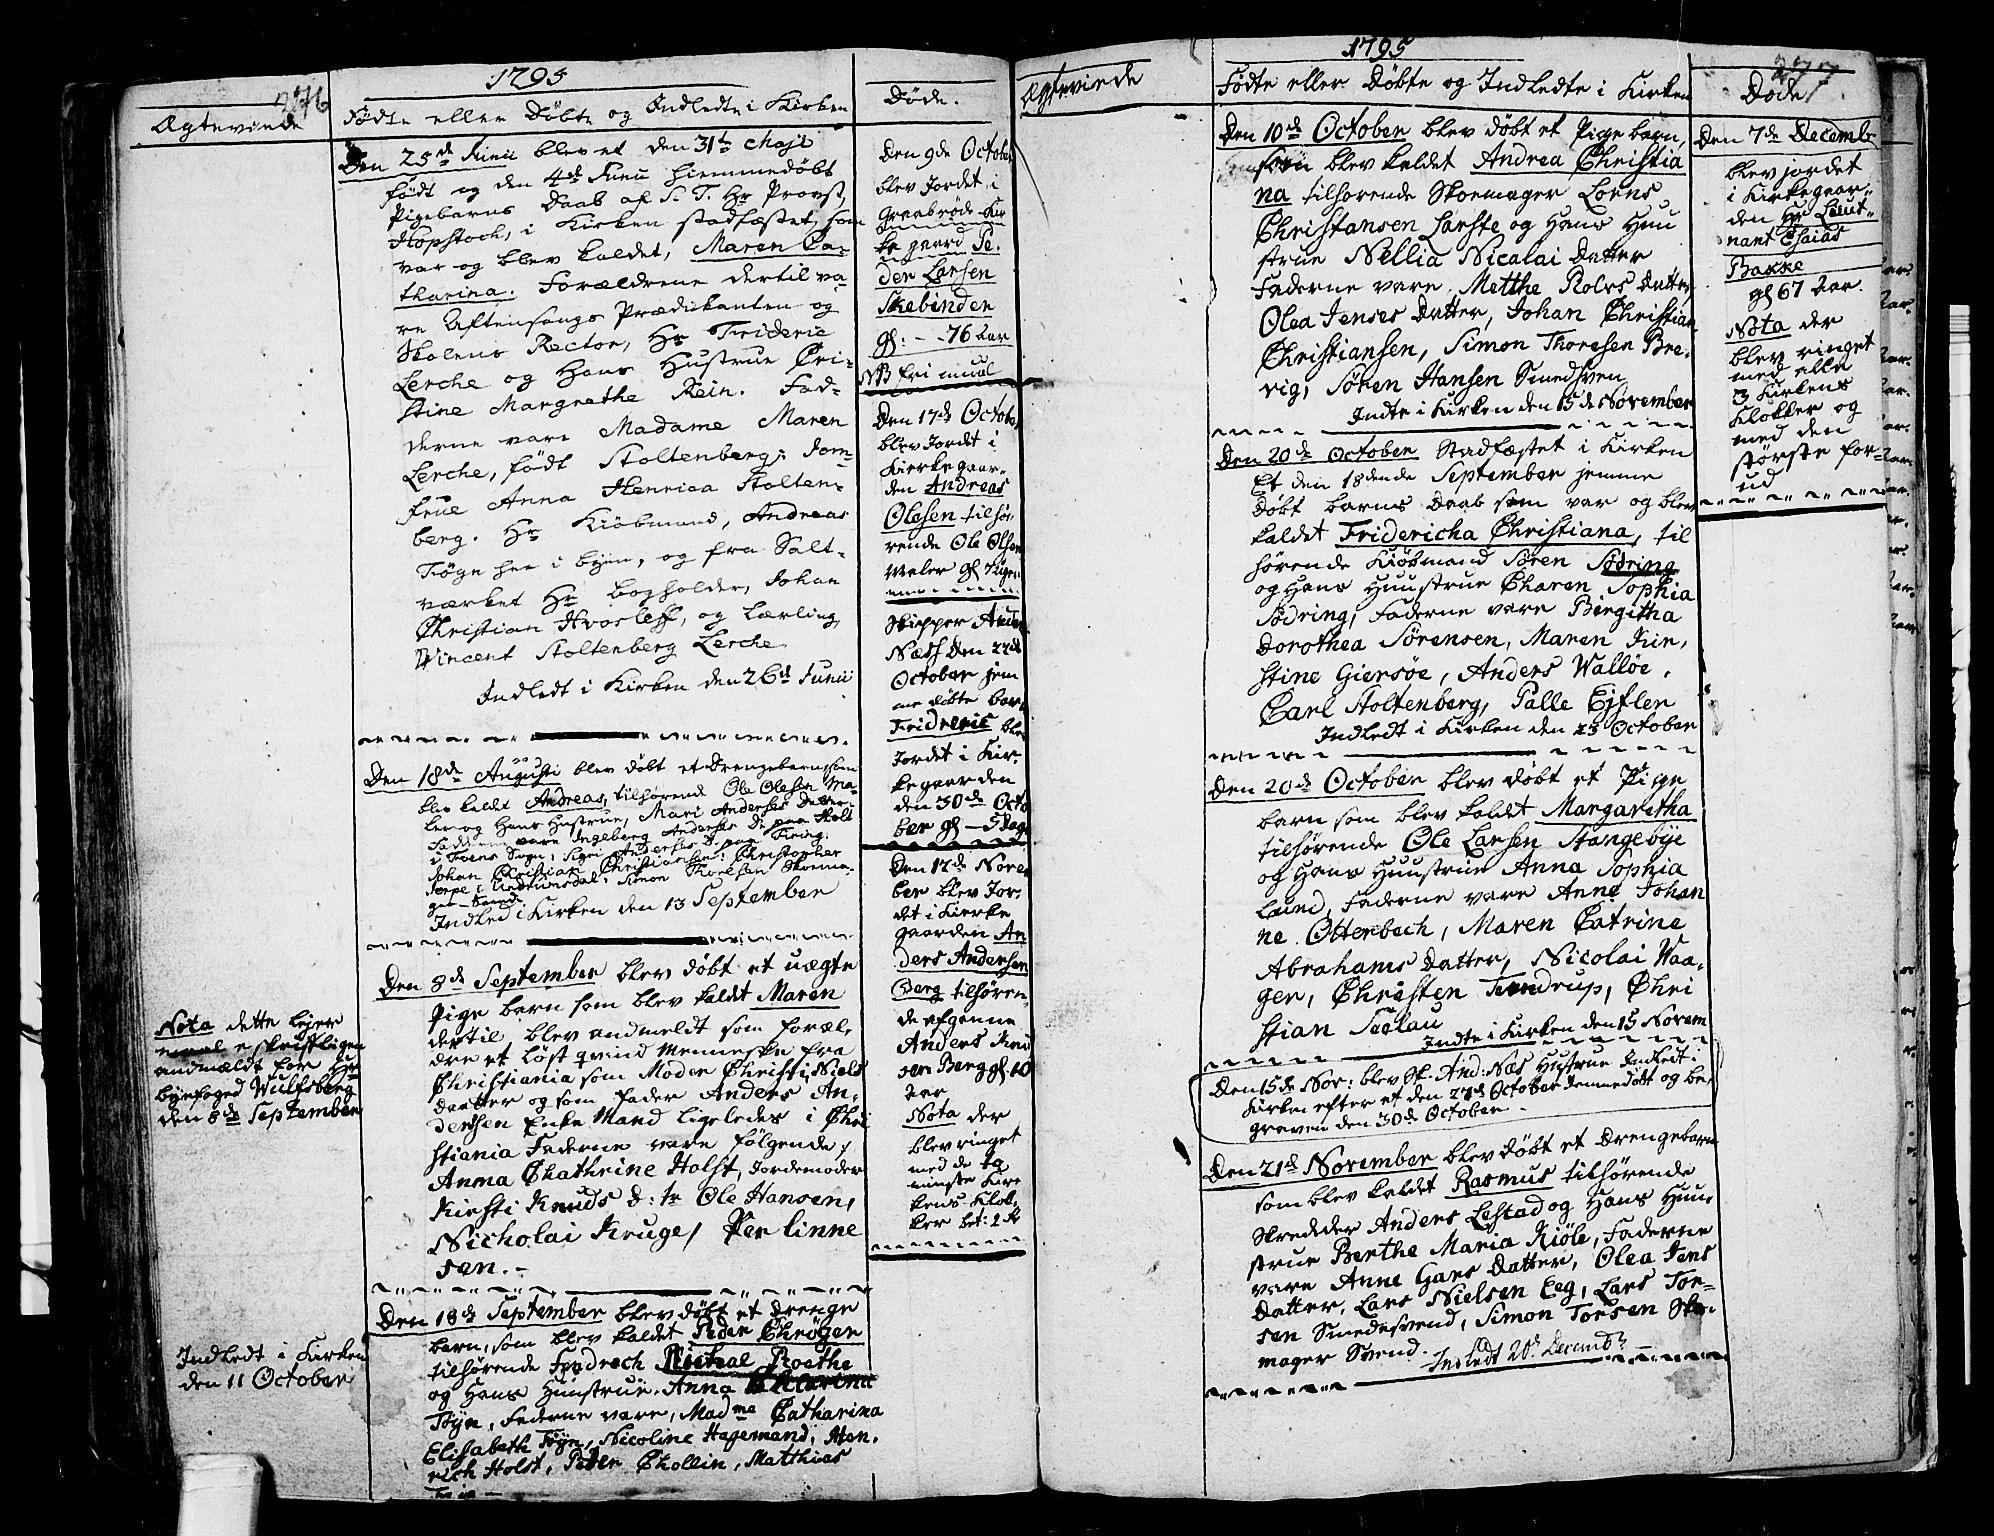 276
1795
Ægteviede
Fødte eller Døbte og Indledte i Kirken
Døde.
Den 25de Junii blev et den 31te Maji
født og den 4de Junii hiemmedøbt
Pigebarns Daab af S. T. Hr Provst
Hopstock, i Kirken stadfæstet, som
var og blev kaldet, Maren Ca-
tharina. Forældrene dertil va-
re Aftensangs Prædikanten og
Skolens Rector, Hr Frideric
Lerche og Hans Hustrue Chri-
stine Margrethe Rein. Fad-
derne vare Madame Maren
Lerche, født Stoltenberg; Jom-
frue Anna Henrica Stolten-
berg. Hr Kiöbmand, Andreas
Föyn her i byen, og fra Salt-
værket Hr bogholder, Johan
Christian Hvoslef, og Lærling
Vincent Stoltenberg Lerche
Indledt i Kirken den 26d Junii
Den 18de Augusti blev døbt et Drengebarn som
blev kaldet Andreas, tilhørende Ole Olesen Ma-
ler og Hans Hustrue, Mari Anderses Datter.
Fadderne vare Ingeborg Anderses D: paa Holt
i Sognet
Johan Christian Christiansen: Christopher
Simon Thoresen Skoma-
ger-Svend.
Indled i Kirken den 13 September
Den 8de September blev døbt et uægte
Pige barn som blev kaldet Maren
dertil blev andmeldt som foræl-
dre et løst qvind Menneske fra
Christiania som Moder Christi, Niels
daatter og som fader Anders An-
dersen Enke Mand ligeledes i Chri
stiania Faderne vare følgende;
Anna Chathrine Holst, Jordemoder
Kirsti Knuds d: tr Ole Hansen,
Nicholai Kruge, Per linne
sen.-
Nota dette leyer
maal e skriftligen
andmældt for Hr
byefoged Wulfsberg
den 8de September
Den 18de September blev døbt et Drenge
barn, som blev kaldet Peder Chröger
tilhørende Fredrech Roethe
og Hans Huustrue. Anna
Töyn, Faderne vare, Madme Catharina
Elisabeth Föyn, Nicoline Hagemand, Hen-
rich Holst, Peder Chollin, Matthias
Indledt i Kirken
den 11 October
Den 9de October
blev Jordet i
Graabrøde Kir
ke gaard Pe-
der Larsen
Skebinden
gl: - - 76 Aar
NB fri muul
Den 17de October
blev Jordet i
Kierkegaar-
den Andreas
Olesen tilhø-
rende Ole Olsen
Maler gl 7 Uger
Skipper Anders
Næss Den 22de
October jem
me døbte barn
Fridreric blev
Jordet i Kir-
kegaarden
den 30de Octo
ber gl - 5 Dage
Den 17de Novem
ber blev Jor-
det i Kierke
gaarden An
ders Andersen
Berg tilhøren-
de afgenne
Anders Knud
sen Berg gl 10
aar
Nota der
blev ringet
med de to
minste Kir
kens Klok-
ker bet: 2 Rd
1795
277
Ægteviede
Fødte eller Døbte og Indledte i Kirken
Døde
Den 10de October blev døbt et Pige barn,
som blev kaldet Andrea Christia
na tilhørende Skoemager Lorns
Christansen Larste og Hans Huu
strue Nellia Nicolai Datter
Faderne vare. Metthe Rolvs Datter,
Olea Jenses Datter, Johan Christian
Christiansen, Simon Thoresen Bre-
vig, Søren Hansen Smedsven
Indte i Kirken den 15de November
Den 20de October Stadfæstet i Kirken
Et den 18dende September jemme
Døbt barns Daab som var og blev
kaldet Fridericha Christiana, til
hørende Kiøbmand Sören Södring
og Hans Huustrue Charen Sophia
Södring, Faderne vare Birgitha
Dorothea Sørensen, Maren Kir-
stine Giersøe, Anders Walløe,
Carl Stoltenberg, Palle Ejflen
Indledt i Kirken den 25 October
Den 20de October blev døbt et Pige
barn som blev kaldet Margaretha
tilhørende Ole Larsen Stangebÿe
og Hans Huustrue Anna Sophia
Lund, Faderne vare Anne Johan
ne. Otterbech, Maren Catrine
Abrahams Datter, Nicolai Waa-
ger, Christen Trendrup, Chri
stian Seelau
Indte i Kirken den 15 Novem
Den 15de Nov: blev Sk. And: Næs Hustrue Indledt i
Kirken efter et den 27de October Jemmedøbt og be-
graven den 30de October -
Den 21de November blev døbt et Drengebarn
som blev kaldet Rasmus tilhørende
Skredder Anders Lestad og Hans Huu-
strue Berthe Maria Kiöle, Faderne
vare Anne Hans Datter, Olea Jens
Datter, Lars Nielsen Eeg, Lars Tor-
sen Smedesvend, Simon Torsen Sko-
mager Svend.
Indledt 20d Decembr
Den 7de Decembr
blev jordet
i Kirkegaar-
den Hr Leut-
nant Esaias
Bakke
gl 67 Aar.
Nota der
blev ringet
med alle
3 Kirkens
Klokker og
med den
største for-
ud